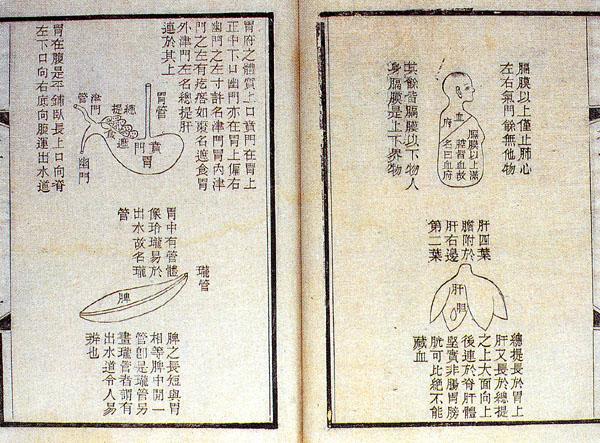 膈膜以上僅止肺心
左右氣門餘無他物
膈膜以上滿
腔皆血故
名曰血府
血府
其餘皆膈膜以下物人
身膈膜是上下界物
肝四葉
膽附於
肝右邊
第二葉
肝
膽
總提長於胃上
肝又長於總提
之上大面向上
後連於脊肝體
堅實非腸胃膀
胱可比絕不能
藏血
胃府之體質上口賁門在胃上
正中下口幽門亦在胃上偏右
幽門之左寸許名津門胃內津
門之左有疙瘩如棗名遮食胃
外津門左名總提肝
連於其上
胃管
賁門
胃
總提
遮食
津門
管
幽門
胃在腹是平鋪臥長上口向脊
左下口向右底向腹連出水道
瓏管
脾
胃中有管體
像玲瓏易於
出水故名瓏
管
脾之長短與胃
相等脾中間一
管即是瓏管另
畫瓏管者謂有
出水道令人易
辨也